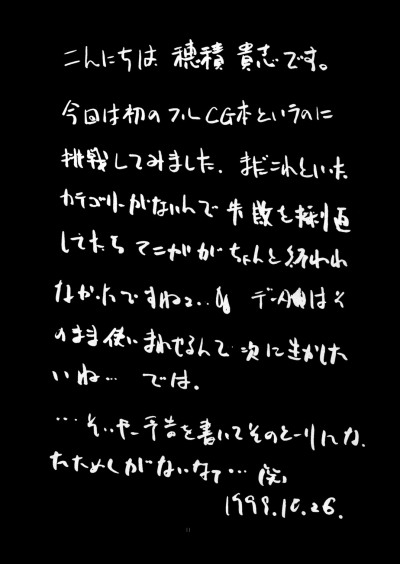 こんにちは 穂積 貴志です。
今回は初のフルCG本というのに
挑戦してみました。まだこれといった
カテゴリーがないんで失敗を繰り返
してたら てこががちゃんと終われ
なかったですね。 データはそ
のまま使いまわせるんで次に生かした
いね… では。
…そいや予告を書いてそのとーりにな
たためしがないなァ…(笑)
1998.10.26.